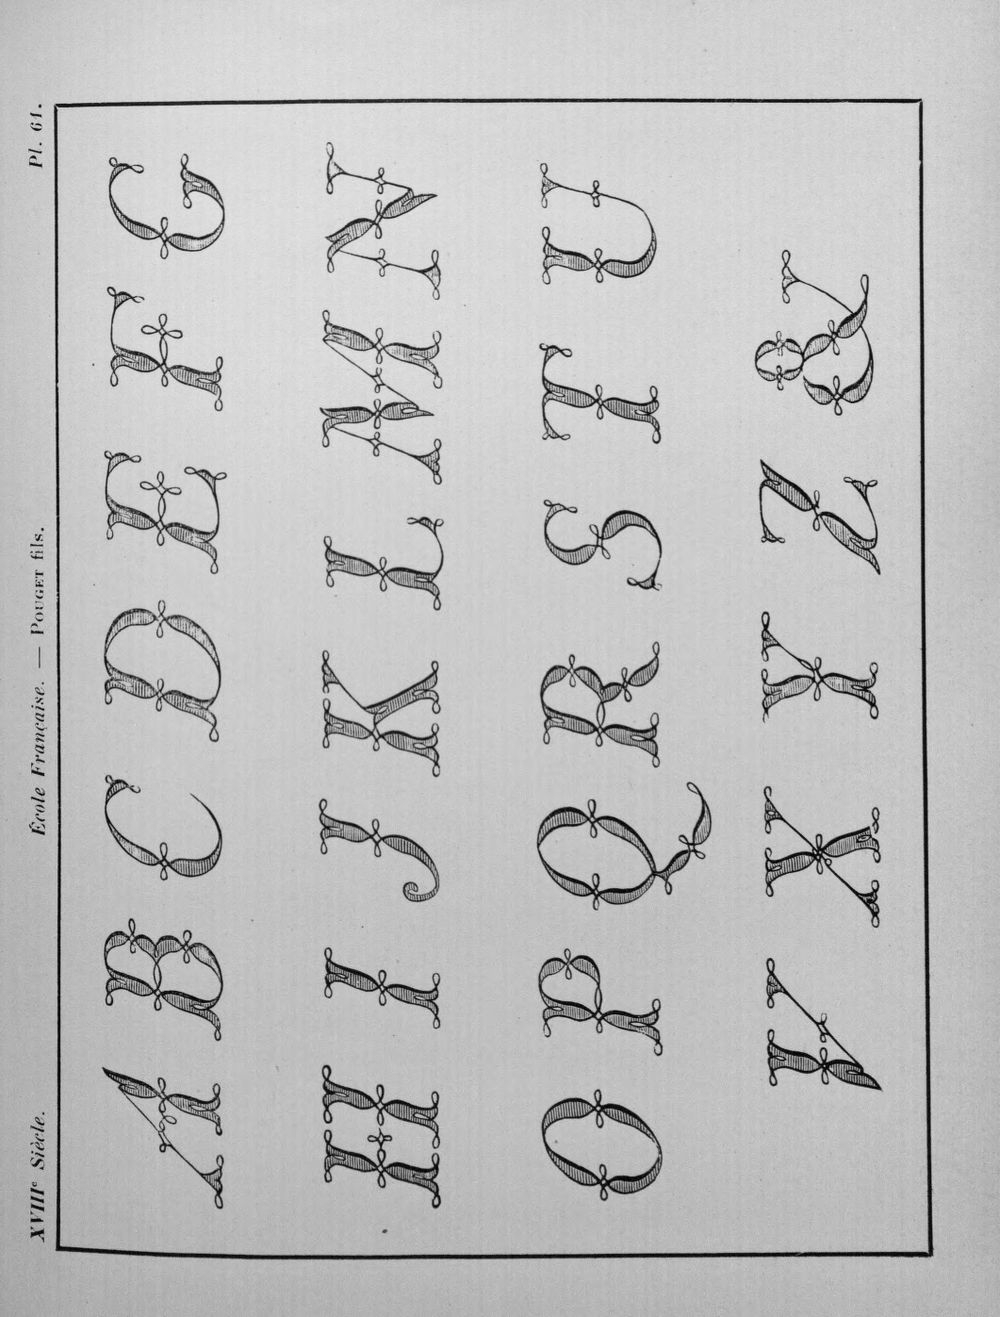 XVIIIe Siècle. École Française. — POUGET fils. Pl. 61.
A B C D E F G
H I J K L M N
O P Q R S T U
V X Y Z &